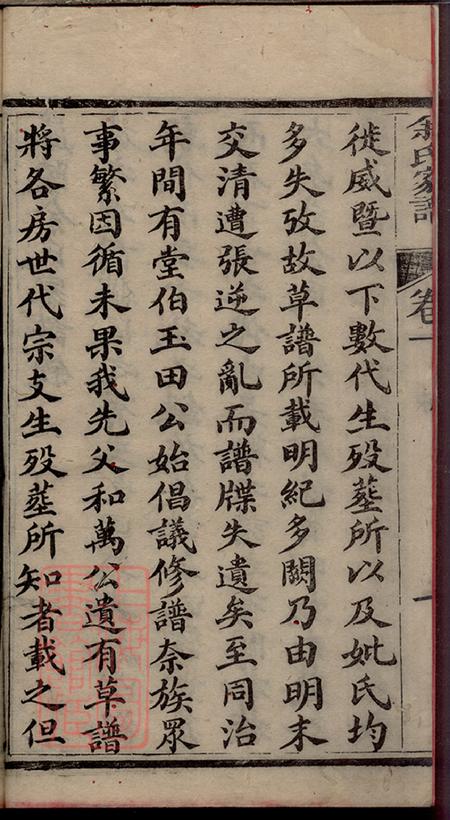 余氏家譜 卷一 一
從威暨以下數代生歿塟所以及妣氏均
多失攷故草譜所載明紀多闕乃由明末
交清遭張逆之亂而譜牒失遺矣至同治
年間有堂伯玉田公始倡議修譜奈族眾
事繁因循未果我先父和萬公遺有草譜
將各房世代宗支生歿塟所知者載之但